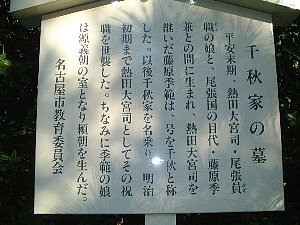 千秋家の墓
平安末期、熱田大宮司・尾張員
職の娘と、尾張国の目代・藤原季
兼との間に生まれ、熱田大宮司を
継いだ藤原季範は、号を千秋と称
した。以後千秋家を名乗り、明治
初期まで熱田大宮司としてその祝
職を世襲した。ちなみに季範の娘
は源義朝の室となり頼朝を生んだ。
名古屋市教育委員会